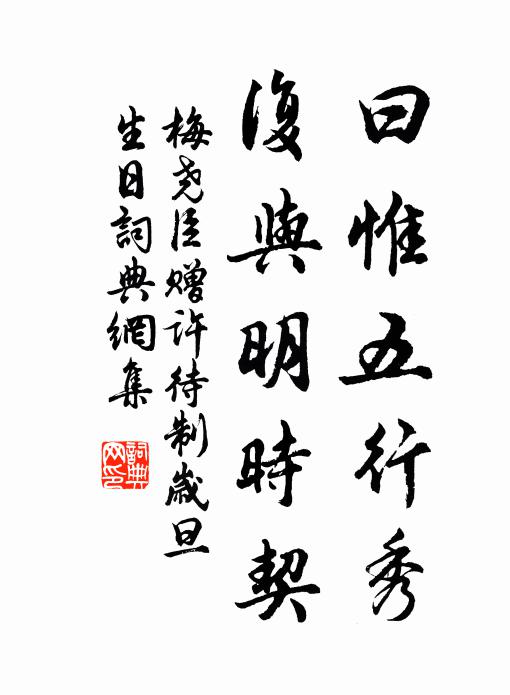 曰惟五行秀
復與明時契
梅堯臣贈許待制歲旦
生日詞典網集
詞典
网印